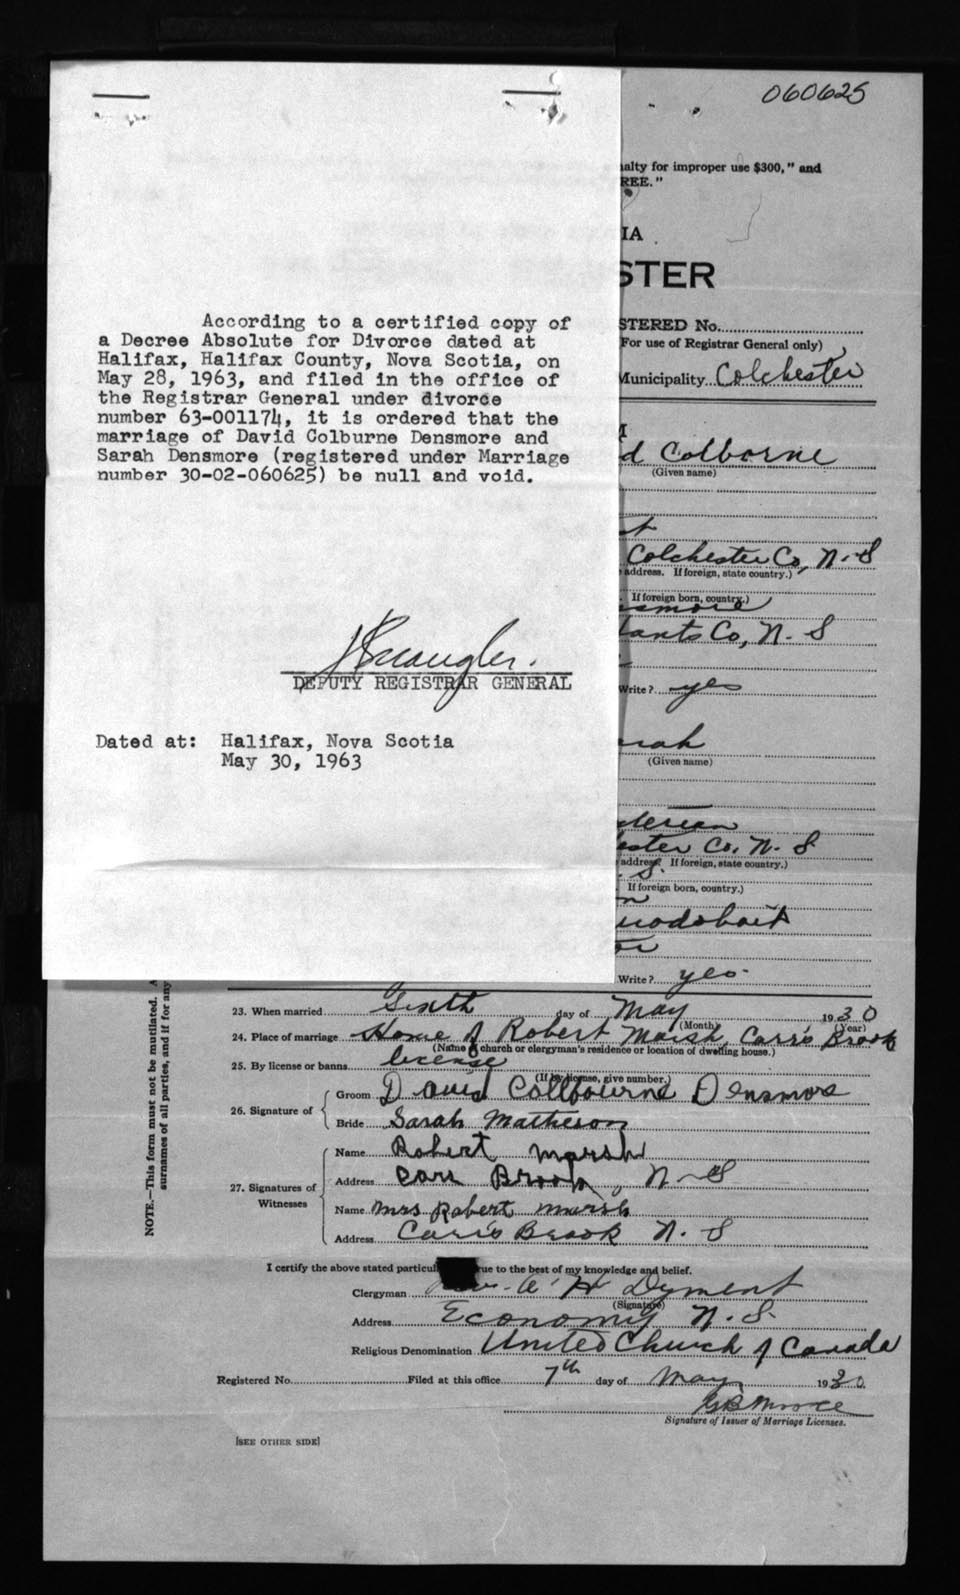 060625
alty for improper use $300," and
REE."
IA
STER
According to a certified copy of
a Decree Absolute for Divorce dated at
Halifax, Halifax County, Nova Scotia, on
May 28, 1963, and filed in the office of
the Registrar General under divorce
number 63-001174, it is ordered that the
marriage of David Colburne Densmore and
Sarah Densmore (registered under Marriage
number 30-02-060625) be null and void.
DEPUTY REGISTRAR GENERAL
Dated at: Halifax, Nova Scotia
May 30, 1963
STERED No.
For use of Registrar General only)
Municipality Colchester
d Colborne
(Given name)
Colchester Co, N. S
address. If foreign, state country.)
If foreign born, country.)
smore
ants Co, N. S
Write? yes
rah
(Given name)
terian
ester Co. N. S
address? If foreign, state country.)
. S.
If foreign born, country.)
uodoboit
Write? yes
NOTE.—This form must not be mutilated. A
surnames of all parties, and if for any
23. When married Sixth day of May 1930
(Month) (Year)
24. Place of marriage Home of Robert Marsh, Carr's Brook
(Name of church or clergyman's residence or location of dwelling house.)
25. By license or banns license
(If by license, give number.)
26. Signature of Groom David Collbourne Densmore
Bride Sarah Matheson
27. Signatures of Witnesses Name Robert Marsh
Address Carr Brook, N-S
Name Mrs Robert Marsh
Address Carr's Brook N. S
I certify the above stated particul ue to the best of my knowledge and belief.
Clergyman Rev. A. H Dyment
(Signature)
Address Economy N. S.
Religious Denomination United Church of Canada
Registered No. Filed at this office 7th day of May 1930
Signature of Issuer of Marriage Licenses.
[SEE OTHER SIDE]